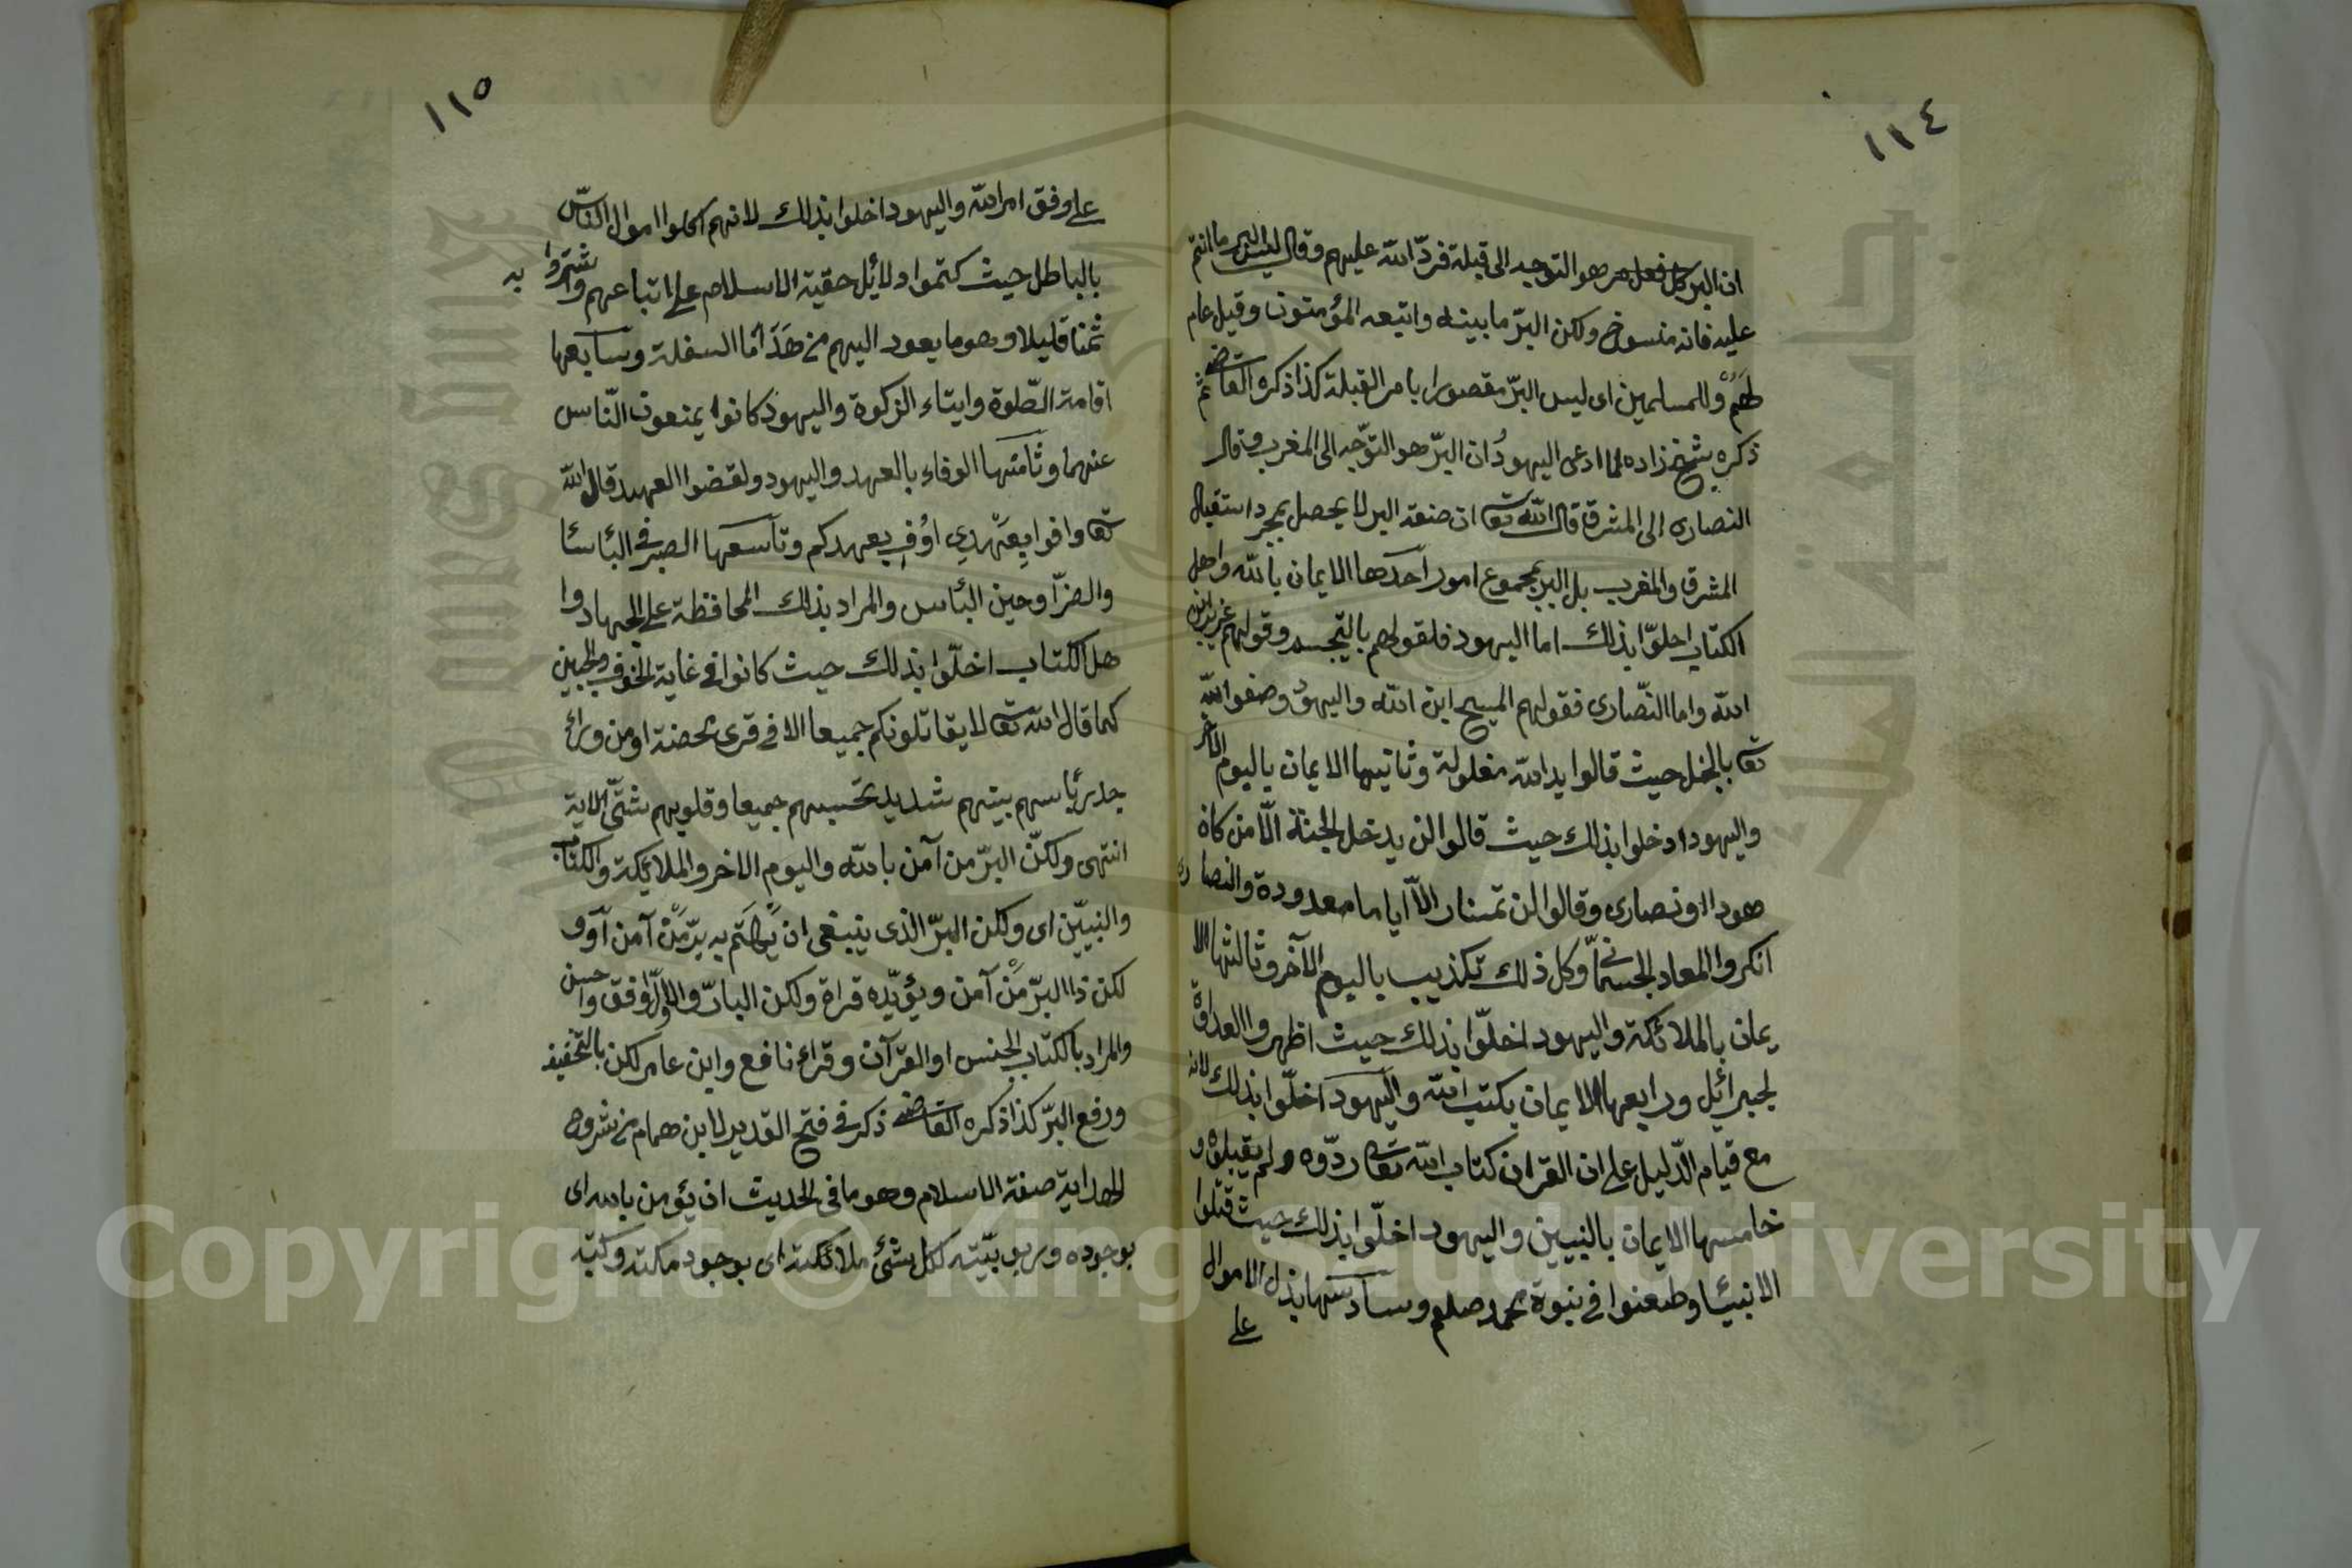 ١١٤
ان البر كل فعل مرضو التوجه الى قبلة فردّ الله عليهم وقال ليس البر ما انتم
عليه فانه منسوخ ولكن البرّ ما بينه واتبعه المؤمنون وقيل عام
لهم وللمسلمين اى ليس البرّ مقصورا بامر القبلة كذا ذكره القاضى ثم
ذكره شيخ زاده لما ادعى اليهود ان البرّ هو التوجّه الى المغرب وقال
النصارى الى المشرق قال الله تعا ان صفة البر لا يحصل بمجرد استقبال
المشرق والمغرب بل البر مجموع امور احدها الايمان بالله واهل
الكتاب اخلوّا بذلك اما اليهود فلقولهم بالتجسم وقولهم عزير ابن
الله واما النّصارى فقولهم المسيح ابن الله واليهود وصفوا الله
تعا بالبخل حيث قالوا يد الله مغلولة وثانيها الايمان باليوم الآخر
واليهود اخلوا بذلك حيث قالوا لن يدخل الجنة الّا من كان
هودا او نصارى وقالوا لن تمسنا النار الاّ اياما معدودة والنصارى
انكروا المعاد الجسمانى وكل ذلك تكذيب باليوم الآخر وثالثها الا
يمان بالملائكة واليهود اخلّوا بذلك حيث اظهروا العداوة
لجبرائيل ورابعها الايمان بكتب الله واليهود اخلّوا بذلك لانه
مع قيام الدّليل على ان القران كتاب الله تعا ردّوه ولم يقبلوه و
خامسها الايمان بالنبيين واليهود اخلّوا بذلك حيث قتلوا
الانبيئا وطعنوا فى نبوة محمد صلعم وسادسها بذل الاموال
على
١١٥
على وفق امر الله واليهود اخلوا بذلك لانهم اكلوا اموال النّاس
بالباطل حيث كتموا دلائل حقية الاسلام على اتباعهم واشتروا به
ثمنا قليلا وهو ما يعود اليهم من هدايا السفلة وسابعها
اقامة الصّلوة وايتاء الزكوة واليهود كانوا يمنعون النّاس
عنهما وثامنها الوفاء بالعهد واليهود ولقضوا العهد قال الله
تعا وافوا بِعَهْدي اُوْفِ بعهدكم وتاسعها الصبر فى الباسٔا
والضرّا وحين البأس والمراد بذلك المحافظة على الجهاد وا
هل الكتاب اخلّوا بذلك حيث كانوا فى غاية الخوف والجبن
كما قال الله تعا لا يقاتلونكم جميعا الا فى قرى محصنة او من ورائ
جدر بأسهم بينهم شديد تحسبهم جميعا وقلوبهم شتّى الاية
انتهى ولكنّ البرّ من آمن بالله واليوم الاخر والملائكة والكتاب
والنبيّن اى ولكن البرّ الذى ينبغى ان يُهْتَم به برّ مَنْ آمن أوو
لكن ذا البرّ مَنْ آمن ويؤيّده قراة ولكن البارّ والاوّل اوفق واحسن
والمراد بالكتاب الجنس او القرّآن وقراء نافع وابن عامر لكن بالتخفيف
ورفع البرّ كذا ذكره القاضى ذكر فى فتح القدير لابن همام من شروح
الهداية صفة الاسلام وهو ما فى الحديث ان يؤمن بالله اى
بوجوده وربوبيّته لكل شئ ملائكته اى بوجود مكته وكتبه
Copyright © King Saud University